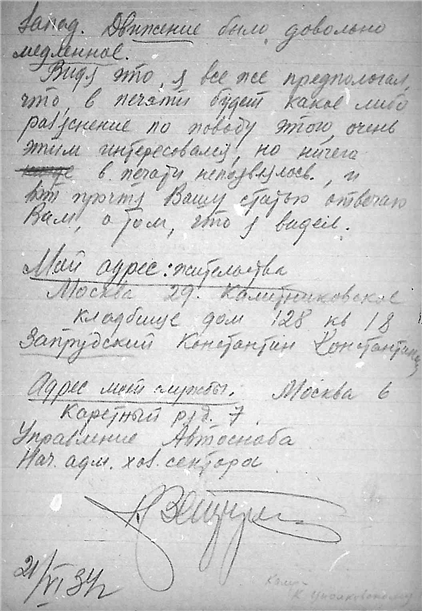 Запад. Движение было довольно
медленное.
Видя это, я все же предпологал,
что, в печати будет какое либо
разяснение по поводу этого, очень
этим интересовался, но ничего
в печати непоявлялось, и
вот прочтя Вашу статью отвечаю
Вам, о том, что я видел.
Мой адрес: жительства
Москва 29. Калитниковское
кладбище дом 128 кв 18
Запрудский Константин Константинов
Адрес моей службы. Москва 6
Каретный ряд. 7.
Управление Автоснаба
Нач. адм. хоз. сектора
21/VI 34 г
К Циолковскому